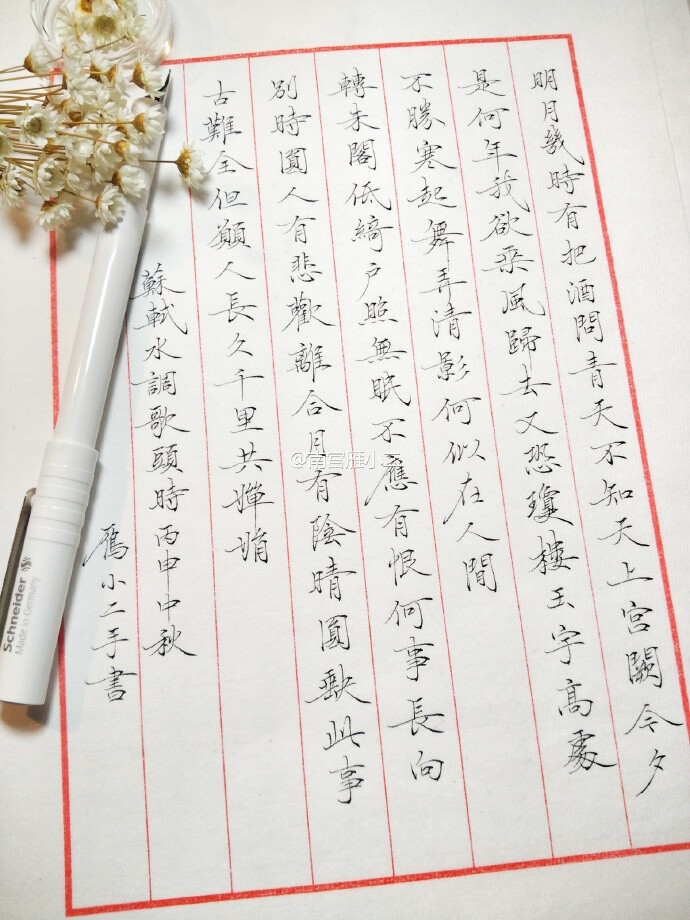 明月幾時有把酒問青天不知天上宮闕今夕
是何年我欲乘風歸去又恐瓊樓玉宇高處
不勝寒起舞弄清影何似在人間
轉朱閣低綺戶照無眠不應有恨何事長向
別時圓人有悲歡離合月有陰晴圓缺此事
古難全但願人長久千里共嬋娟
蘇軾水調歌頭時丙申中秋
雁小二手書
@南宫雁小二
Schneider
Made in Germany